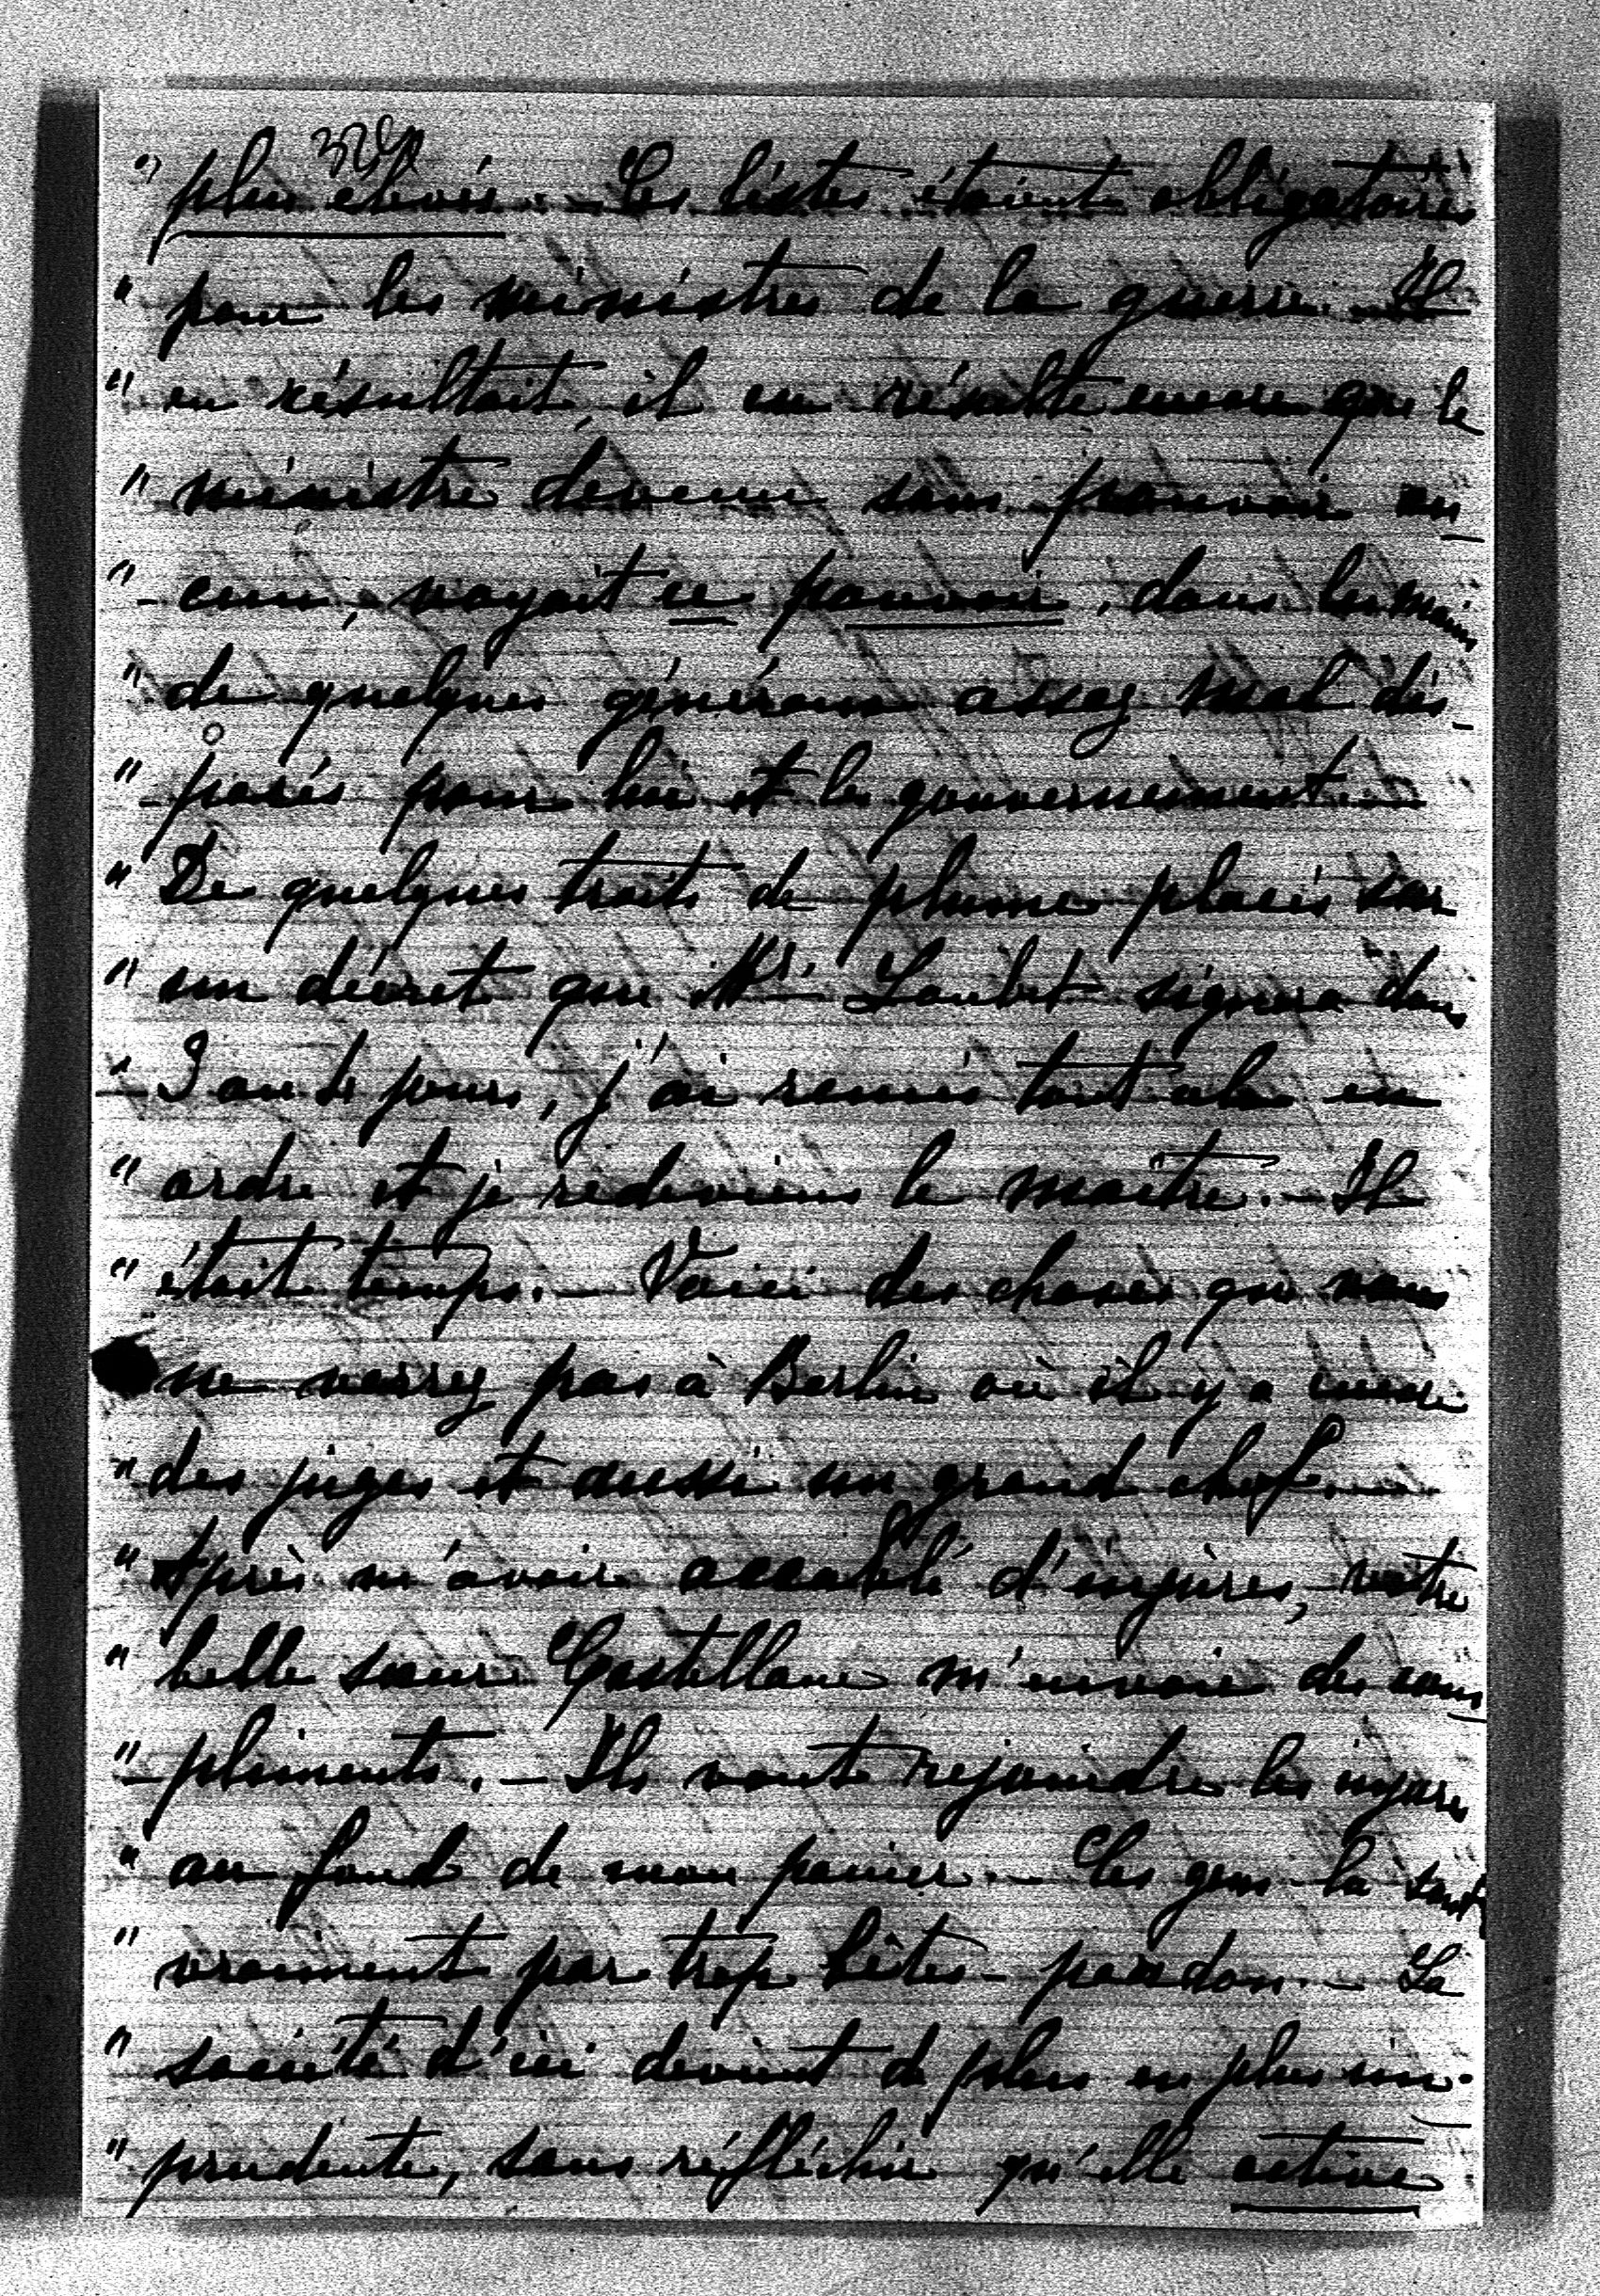 " plus élevés. - Les listes étaient obligatoires
" pour les ministres de la guerre. Il
" en résultait, il en résulte encore que le
" ministre devenu sans pouvoir au-
" -cun, voyait ce pouvoir, dans les mains
" de quelques généraux assez mal dis-
" -posés pour lui et le gouvernement. -
" De quelques traits de plume placés sur
" un décret que Mr. Loubet signera dans
" 3 ou 4 jours, j'ai remis tout cela en
" ordre et je redeviens le maître. - Il
" était temps. - Voici des choses que vous
ne verrez pas à Berlin où il y a encore
" des juges et aussi un grand chef. -
" Après m'avoir accablé d'injures, votre
" belle soeur Castellane m'envoie des com-
" -pliments. - Ils vont rejoindre les injures
" au fond de mon panier. - Ces gens-là sont
" vraiment par trop bêtes - pardon. - La
" société d'ici devient de plus en plus im-
" prudente, sans réfléchir qu'elle active